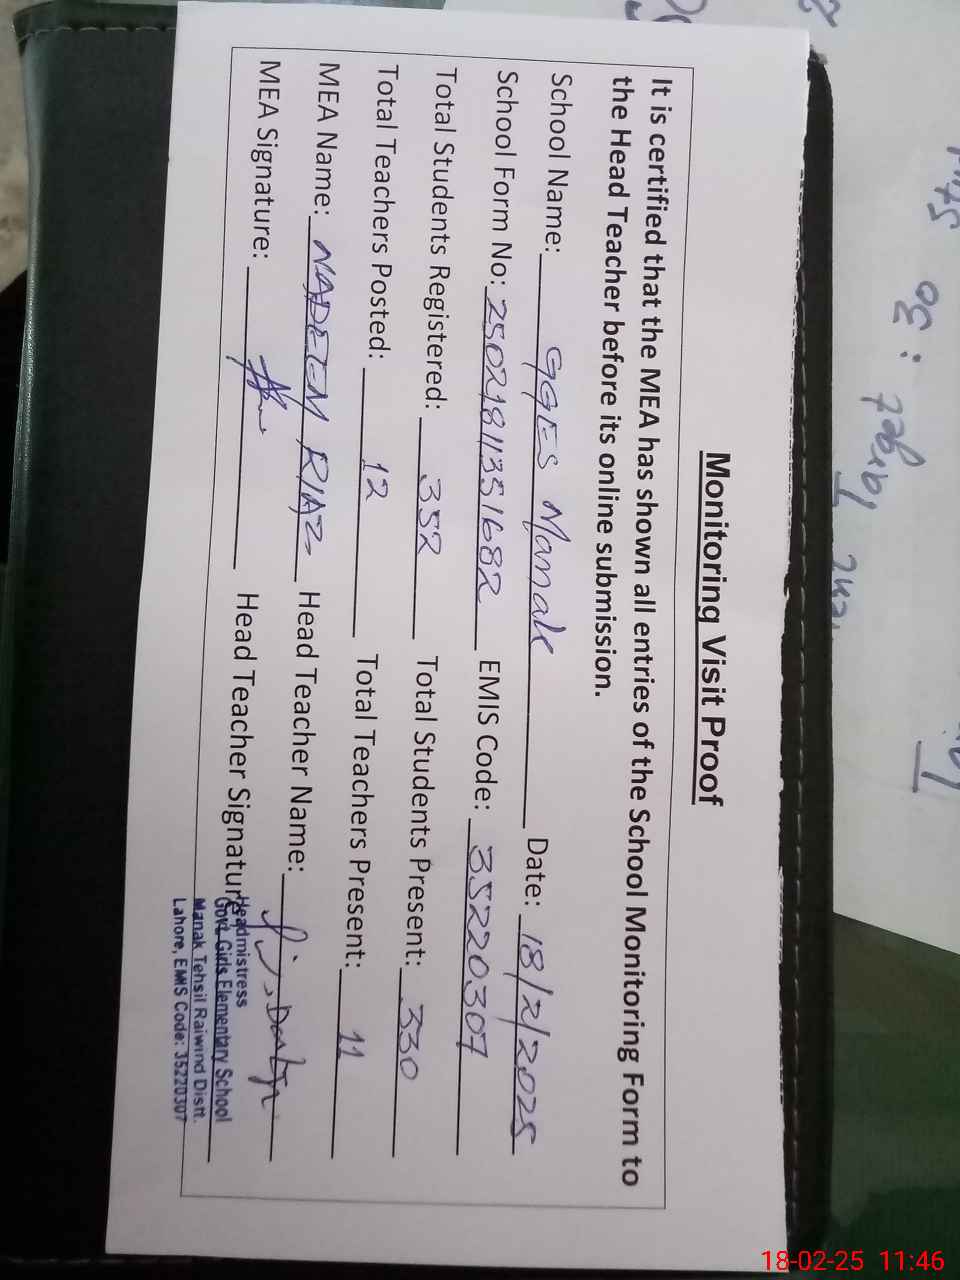 Monitoring Visit Proof
It is certified that the MEA has shown all entries of the School Monitoring Form to
the Head Teacher before its online submission.
School Name: GGES Manak Date: 18/2/2025
School Form No: 25021811351682 EMIS Code: 35220307
Total Students Registered: 352 Total Students Present: 330
Total Teachers Posted: 12 Total Teachers Present: 11
MEA Name: NADEEM RIAZ Head Teacher Name:
MEA Signature: Head Teacher Signature:
Headmistress
Govt. Girls Elementary School
Manak Tehsil Raiwind Distt.
Lahore, EMIS Code: 35220307
18-02-25 11:46